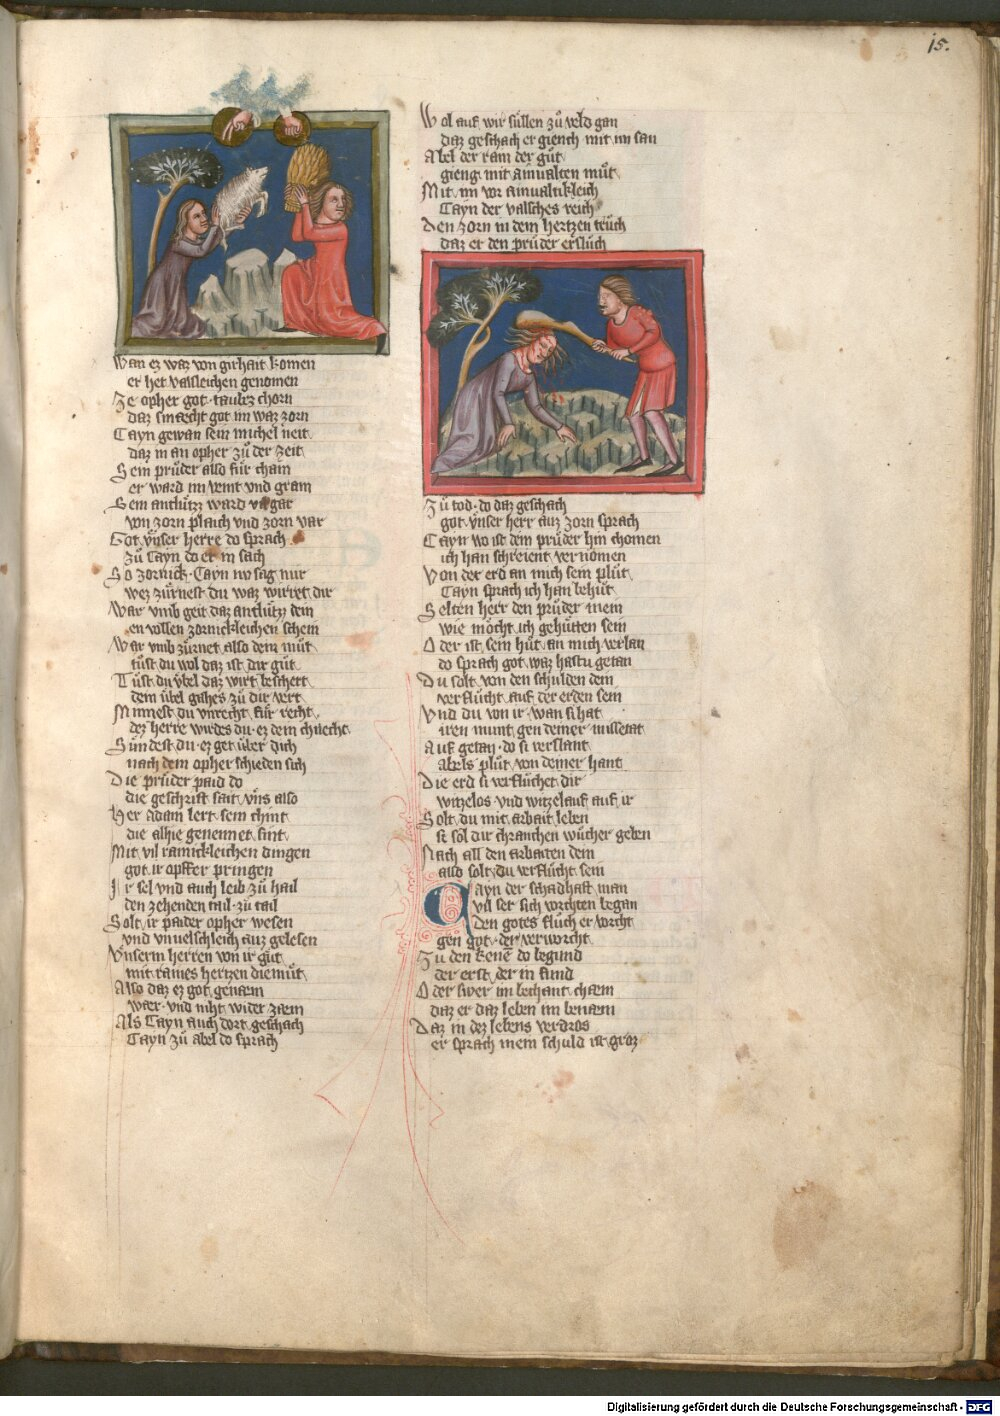 15.
Wan ez waz von girhait komen
er het valsleichen genomen
Ze opher got taubz chorn
daz smæcht got im waz zorn
Cayn gewan sein michel neit
daz in an opher zů der zeit
Sein průder also für cham
er ward im veint vnd gram
Sein antlütz ward vil gar
von zorn plaich vnd zorn var
Got vnser herre do sprach
zů Cayn do er in sach
So zornick Cayn nv sag nur
wez zürnest du waz wirret dir
War vmb geit daz antlütz dein
en vollen zornickleichen schein
War vmb zürnet also dein můt
tůst du wol daz ist dir gůt
Tůst du übel daz wirt beschert
dem übel gahes zů dir vert
Minnest du vnrecht für recht
dez herre wirdes du ez dem chnecht
Sündest du ez get über dich
nach dem opher schieden sich
Die průder paid do
die geschrift sait vns also
Her Adam lert sein chint
die alhie genennet sint
Mit vil rainickleichen dingen
got ir opffer pringen
Ir sel vnd auch leib zů hail
den zehenden tail zů tail
Solt ir paider opher wesen
vnd vnuelschleich auz gelesen
Vnserm herren von ir gůt
mit raines hertzen diemůt
Also daz ez got genæm
wær vnd niht wider zæm
Als Cayn auch dort geschach
Cayn zů abel do sprach
Wol auf wir süllen zů veld gan
daz geschach er giench mit im san
Abel der rain der gůt
gieng mit ainualten můt
Mit im vor ainualtikleich
Cayn der valsches reich
Den zorn in dem hertzen trůch
daz er den průder erslůch
Zů tod do daz geschach
got vnser herr auz zorn sprach
Cayn wo ist dein průder hin chomen
ich han schreient vernomen
Von der erd an mich sein plůt
Cayn sprach ich han behůt
Selten herr den průder mein
wie möcht ich gehütten sein
Oder ist sein hůt an mich verlan
do sprach got waz hastu getan
Du solt von den schulden dein
verflücht auf der erden sein
Vnd du von ir wan si hat
iren munt gen deiner missetat
Auf getan do si verslant
abels plůt von deiner hant
Die erd si verflüchet dir
witzelos vnd witzelauf auf ir
Solt du mit arbait leben
si sol dir chrancken wůcher geben
Nach all den arbaiten dein
also solt du verflücht sein
Cayn der schadhaft man
vil ser sich vorchten began
den gotes flůch er vorcht
gen got der verworcht
Zů den kenen do begund
der erst der in fund
Oder swer im bechant chæm
daz er daz leben im benæm
Daz in dez lebens verdros
er sprach mein schuld ist groz
Digitalisierung gefördert durch die Deutsche Forschungsgemeinschaft - DFG